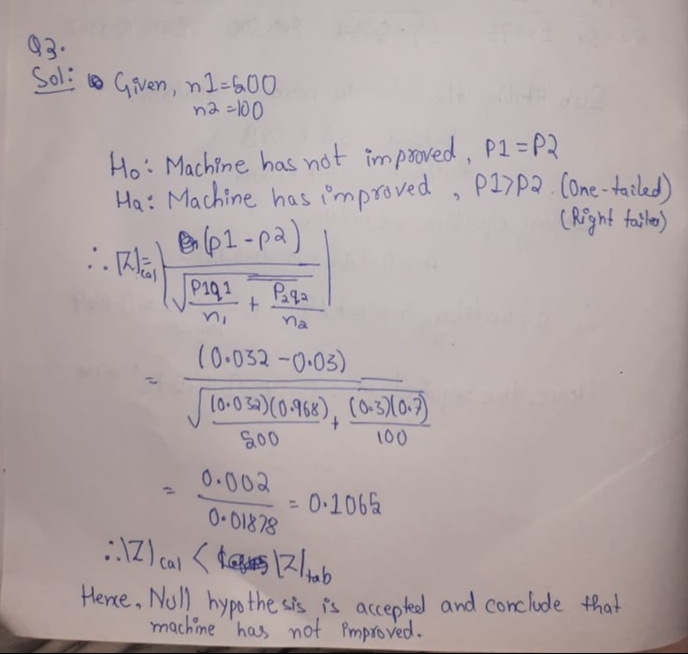 Q3.
Sol: Given, n1=500
n2=100
Ho: Machine has not improved, P1=P2
Ha: Machine has improved, P1>P2. (One-tailed)
(Right tailed)
∴ |Z|cal = | (p1-p2) / √(P1q1/n1 + P2q2/n2) |
= (0.032-0.03) / √((0.032)(0.968)/500 + (0.3)(0.7)/100)
= 0.002 / 0.01878 = 0.1065
∴ |Z|cal < |Z|tab
Hence, Null hypothesis is accepted and conclude that
machine has not improved.